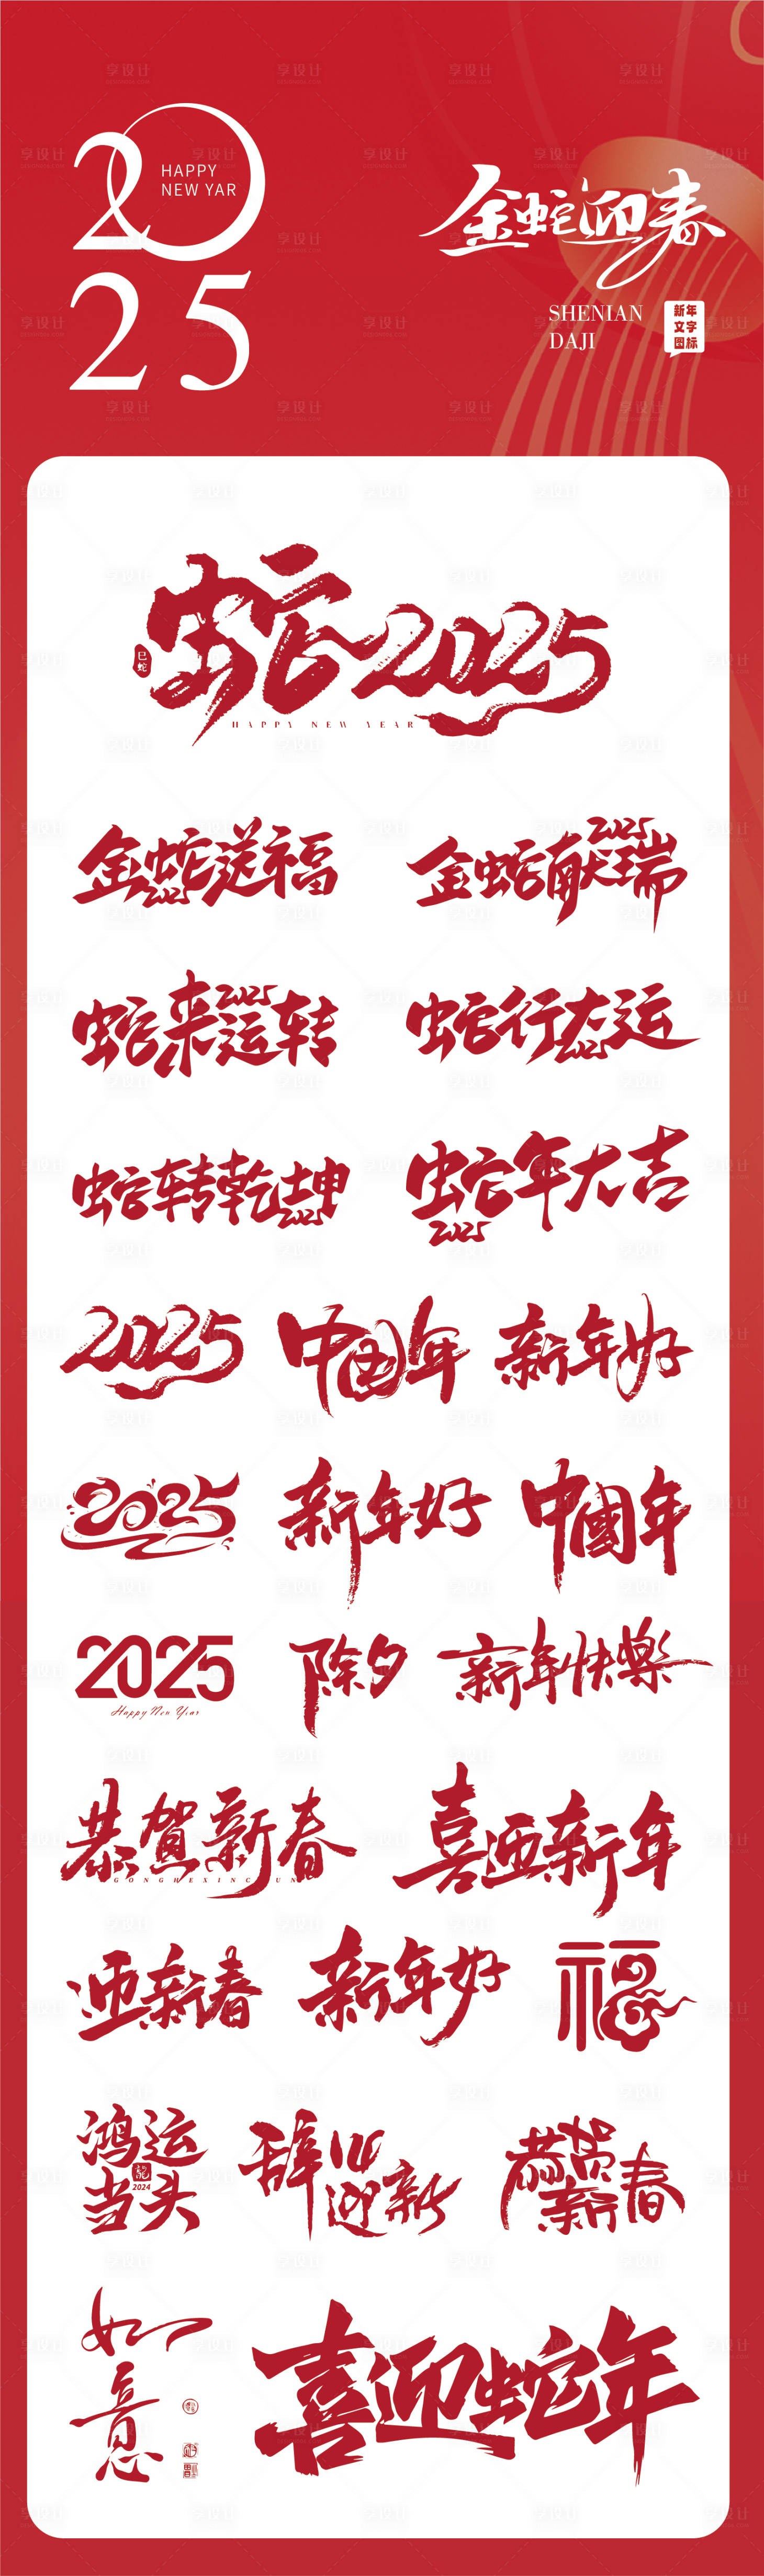 2025
HAPPY
NEW YAR
金蛇迎春
SHENIAN
DAJI
新年
文字
图标
蛇2025
巳蛇
HAPPY NEW YEAR
金蛇送福
2025
金蛇献瑞
2025
蛇来运转
2025
蛇行大运
2025
蛇转乾坤
2025
蛇年大吉
2025
2025
中国年
新年好
2025
新年好
中國年
2025
Happy New Year
除夕
新年快樂
恭贺新春
喜迎新年
迎新春
新年好
福
鸿运
当头
龍
2024
辞旧
迎新
恭贺
新春
如意
喜迎蛇年
享设计